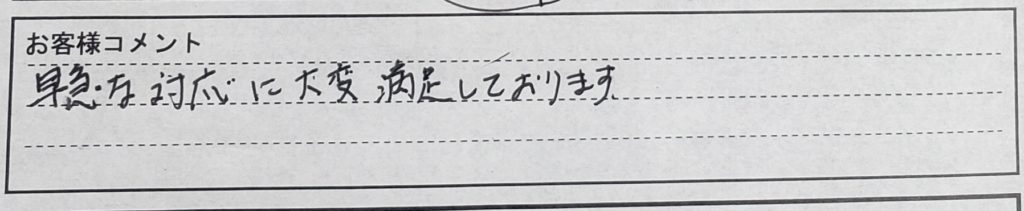 お客様コメント
早急な対応に大変満足しております